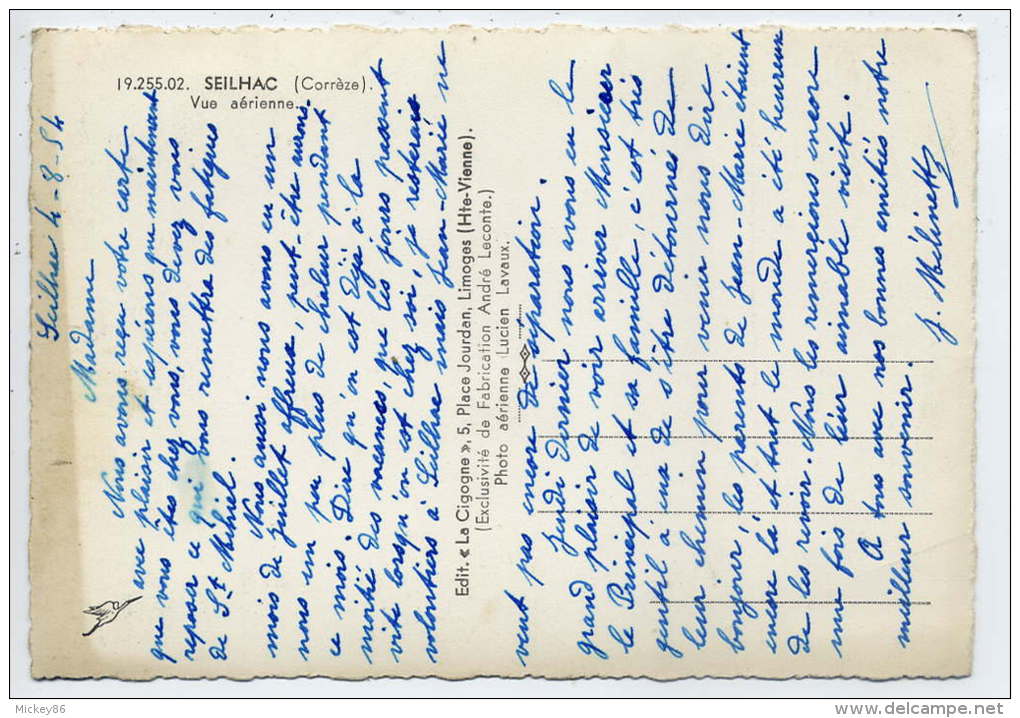 19.255.02. SEILHAC (Corrèze).
Vue aérienne.
Seilhac 4-8-54
Madame
Nous avons reçu votre carte
avec plaisir et espérons que maintenant
que vous êtes chez vous, vous devez vous
reposer ce qui vous remettra des fatigues
de St Mihiel.
Nous aussi nous avons eu un
mois de Juillet affreux, peut-être aurons-
nous un peu plus de chaleur pendant
ce mois. Dire qu'on est déjà à la
moitié des vacances, que les jours passent
vite lorsqu'on est chez soi, je resterais
volontiers à Seilhac mais Jean-Marie ne
Edit. « La Cigogne », 5, Place Jourdan, Limoges (Hte-Vienne).
(Exclusivité de Fabrication André Leconte.)
Photo aérienne Lucien Lavaux.
veut pas encore de séparation.
Jeudi dernier nous avons eu le
grand plaisir de voir arriver Monsieur
le Principal et sa famille, c'est très
gentil à eux de s'être détournés de
leur chemin pour venir nous dire
bonjour, les parents de Jean-Marie étaient
encore là et tout le monde a été heureux
de les revoir. Nous les remercions encore
une fois de leur aimable visite.
A tous avec nos bonnes amitiés notre
meilleur souvenir.
J. Mélinette
Mickey86
delcampe.net